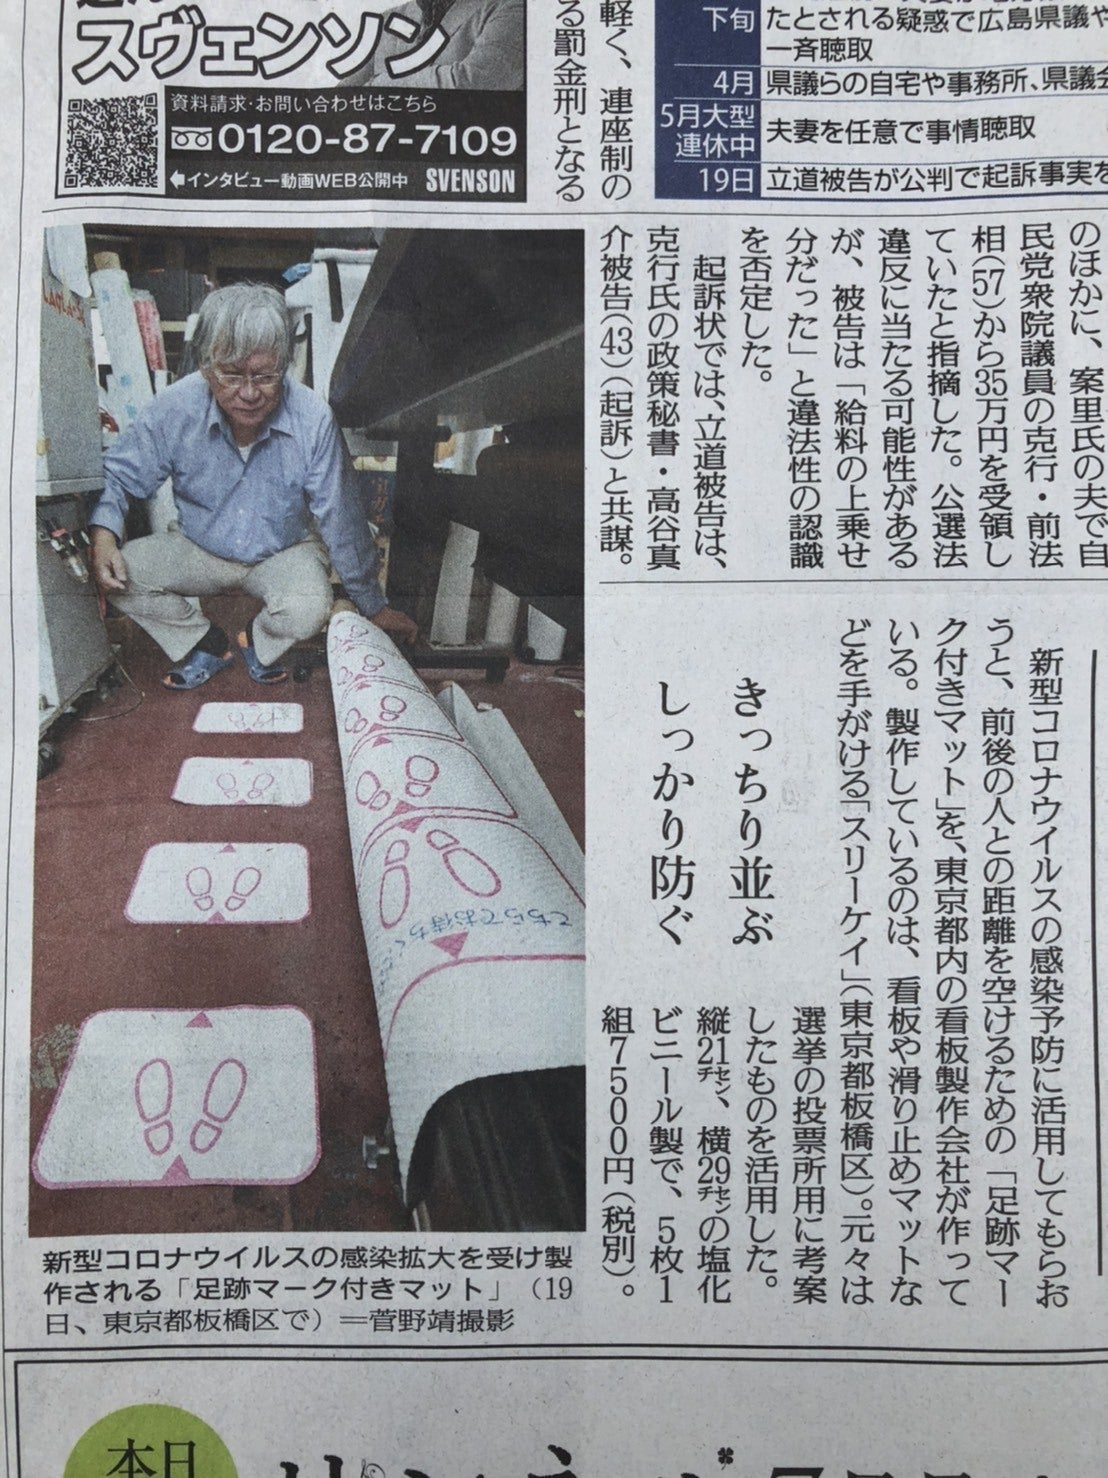 スヴェンソン
資料請求・お問い合わせはこちら
0120-87-7109
インタビュー動画WEB公開中 SVENSON
軽く、連座制の
る罰金刑となる
下旬
たとされる疑惑で広島県議や
一斉聴取
4月
県議らの自宅や事務所、県議会
5月大型
連休中
夫妻を任意で事情聴取
19日
立道被告が公判で起訴事実を
のほかに、案里氏の夫で自
民党衆院議員の克行・前法
相(57)から35万円を受領し
ていたと指摘した。公選法
違反に当たる可能性がある
が、被告は「給料の上乗せ
分だった」と違法性の認識
を否定した。
起訴状では、立道被告は、
克行氏の政策秘書・高谷真
介被告(43)(起訴)と共謀。
きっちり並ぶ
しっかり防ぐ
新型コロナウイルスの感染予防に活用してもらお
うと、前後の人との距離を空けるための「足跡マー
ク付きマット」を、東京都内の看板製作会社が作って
いる。製作しているのは、看板や滑り止めマットな
どを手がける「スリーケイ」(東京都板橋区)。元々は
選挙の投票所用に考案
したものを活用した。
縦21㌢、横29㌢の塩化
ビニール製で、5枚1
組7500円(税別)。
こちらでお待ちく
新型コロナウイルスの感染拡大を受け製
作される「足跡マーク付きマット」(19
日、東京都板橋区で)=菅野靖撮影
本日